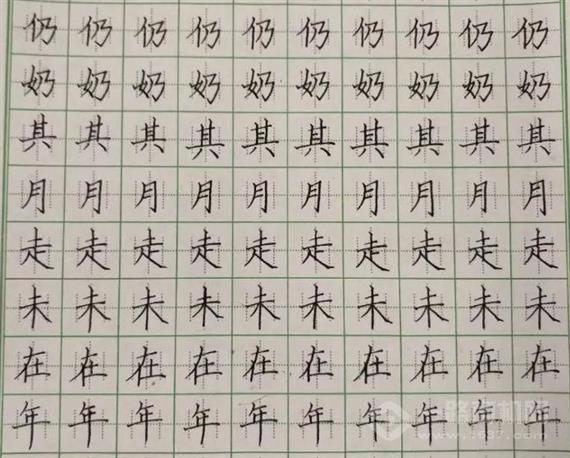 仍仍仍仍仍仍仍仍仍仍
奶奶奶奶奶奶奶奶奶奶
其其其其其其其其其其
月月月月月月月月月月
走走走走走走走走走走
未未未未未未未未未未
在在在在在在在在在在
年年年年年年年年年年